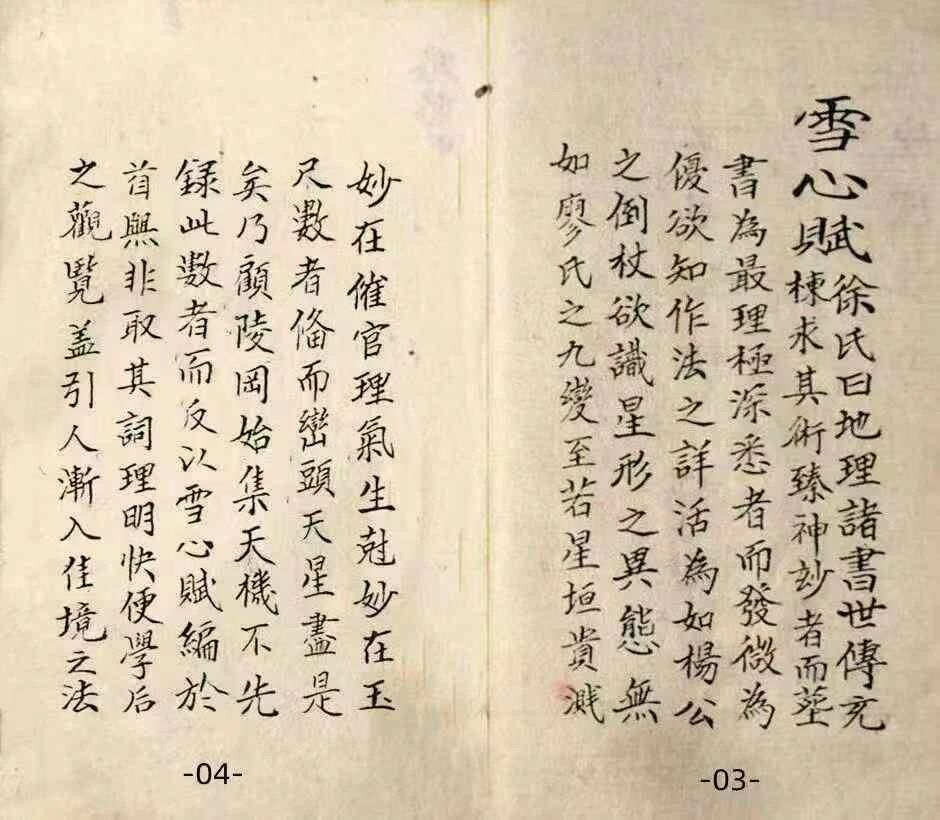 雪心賦徐氏曰地理諸書世傳充
棟求其術臻神玅者而塟
書為最理極深悉者而發微為
優欲知作法之詳活為如楊公
之倒杖欲識星形之異態無
如廖氏之九變至若星垣貴濺
-03-
妙在催官理氣生尅妙在玉
尺數者俻而巒頭天星盡是
矣乃顧陵岡始集天機不先
録此數者而反以雪心賦編於
首與非取其詞理明快便學后
之觀覽盖引人漸入佳境之法
-04-